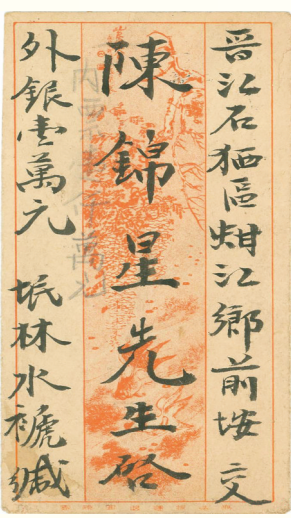 晋江石栖區蚶江鄉前垵 交
陳錦星先生啓
外銀壹萬元 垊林水褫緘